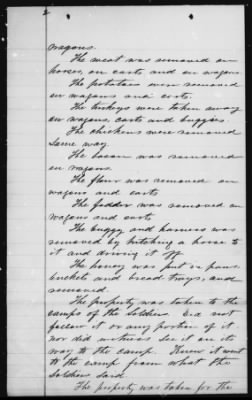 2
wagons.
The meat was removed on
horses, on carts and on wagons.
The potatoes were removed
on wagons and carts.
The turkeys were taken away
on wagons, carts and buggies.
The chickens were removed
same way.
The bacon was removed
on wagons.
The flour was removed on
wagons and carts
The fodder was removed on
wagons and carts
The buggy and harness was
removed by hitching a horse to
it and driving it off.
The honey was put in pans,
buckets and bread trays, and
removed.
The property was taken to the
camps of the soldiers. Did not
follow it or any portion of it
nor did witness see it on its
way to the camp. Knew it went
to the camp from what the
soldiers said.
The property was taken for the